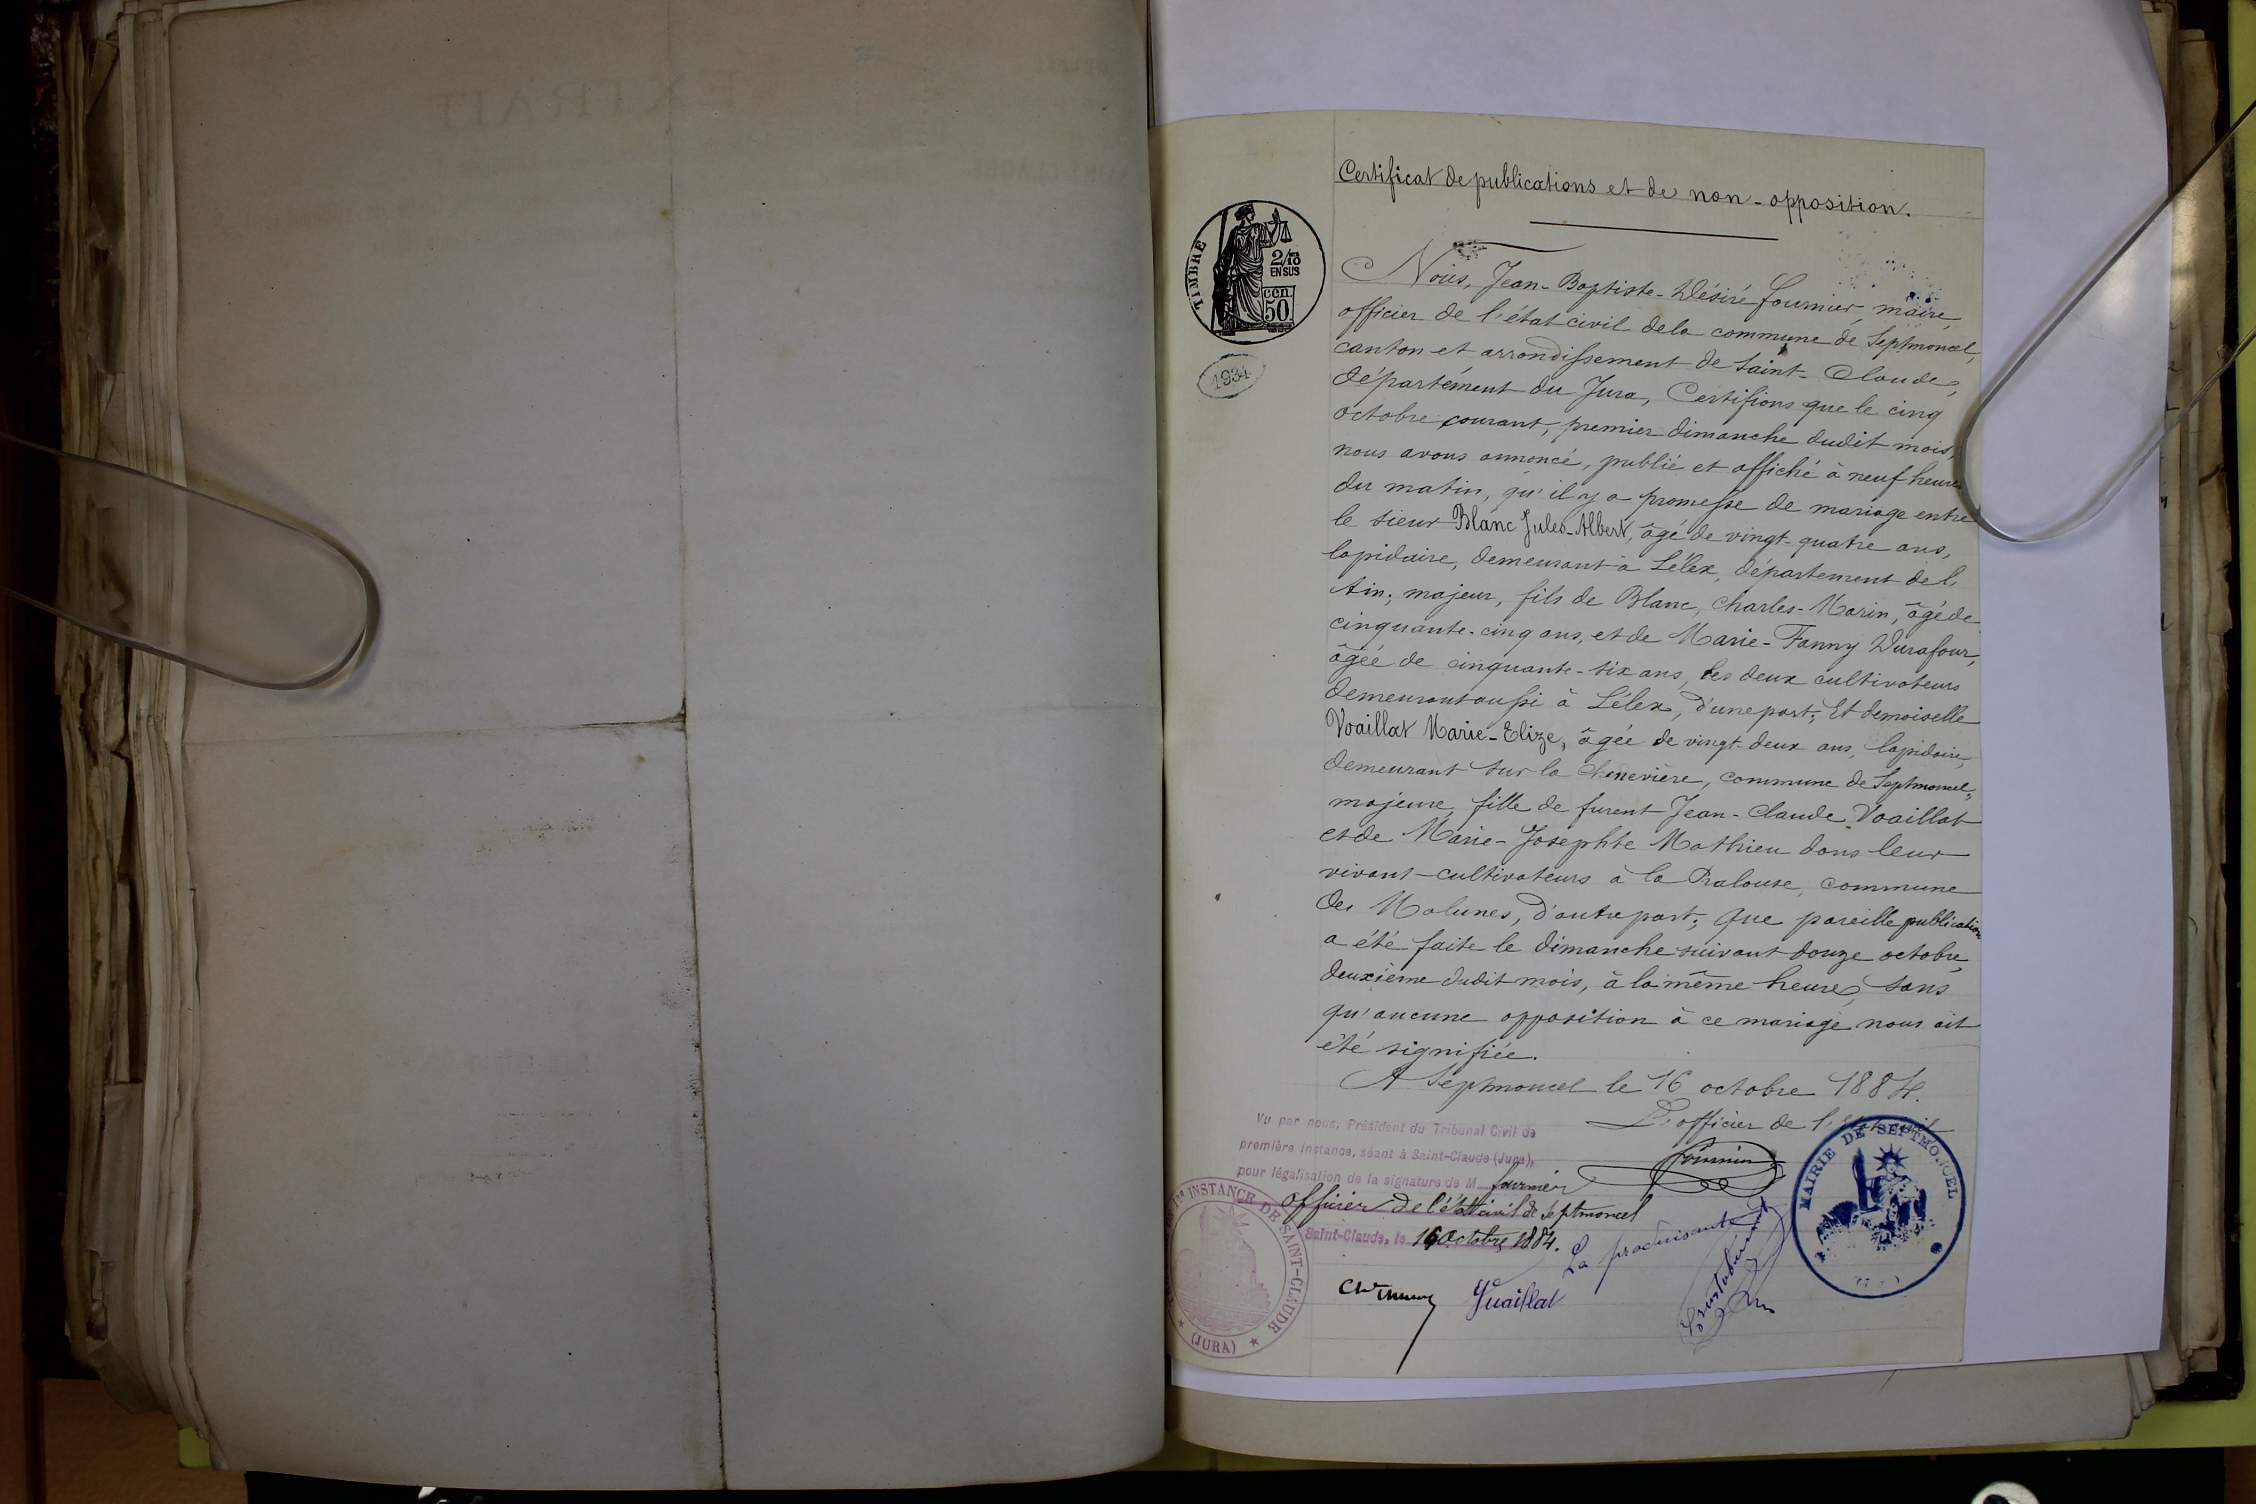 EXTRAIT
Certificat de publications et de non-opposition.
TIMBRE
2/10
EN SUS
cen
50
1934
Nous, Jean-Baptiste-Désiré Fournier, maire,
officier de l'état civil de la commune de Septmoncel,
canton et arrondissement de Saint-Claude,
département du Jura, Certifions que le cinq
octobre courant, premier dimanche dudit mois,
nous avons annoncé, publié et affiché à neuf heures
du matin, qu'il y a promesse de mariage entre
le sieur Blanc Jules-Albert, âgé de vingt-quatre ans,
lapidaire, demeurant à Lélex, département de l'
Ain, majeur, fils de Blanc, Charles-Marin, âgé de
cinquante-cinq ans, et de Marie-Fanny Durafour,
âgée de cinquante-six ans, les deux cultivateurs
demeurant aussi à Lélex, d'une part; Et demoiselle
Vuaillat Marie-Elize, âgée de vingt-deux ans, lapidaire,
demeurant sur la Chenevière, commune de Septmoncel,
majeure, fille de furent Jean-Claude Vuaillat
et de Marie-Josephte Mathieu dans leur
vivant cultivateurs à la Pralouse, commune
des Molunes, d'autre part; que pareille publication
a été faite le dimanche suivant douze octobre,
deuxième dudit mois, à la même heure, sans
qu'aucune opposition à ce mariage nous ait
été signifiée.
A Septmoncel le 16 octobre 1884.
L'officier de l'état civil
Vu par nous, Président du Tribunal Civil de
première Instance, séant à Saint-Claude (Jura),
pour légalisation de la signature de M. Fournier
officier de l'état civil de Septmoncel
Saint-Claude, le 16 Octobre 1884.
Fournier
MAIRIE DE SEPTMONCEL
INSTANCE DE SAINT-CLAUDE
(JURA)
La produisante
Vuaillat